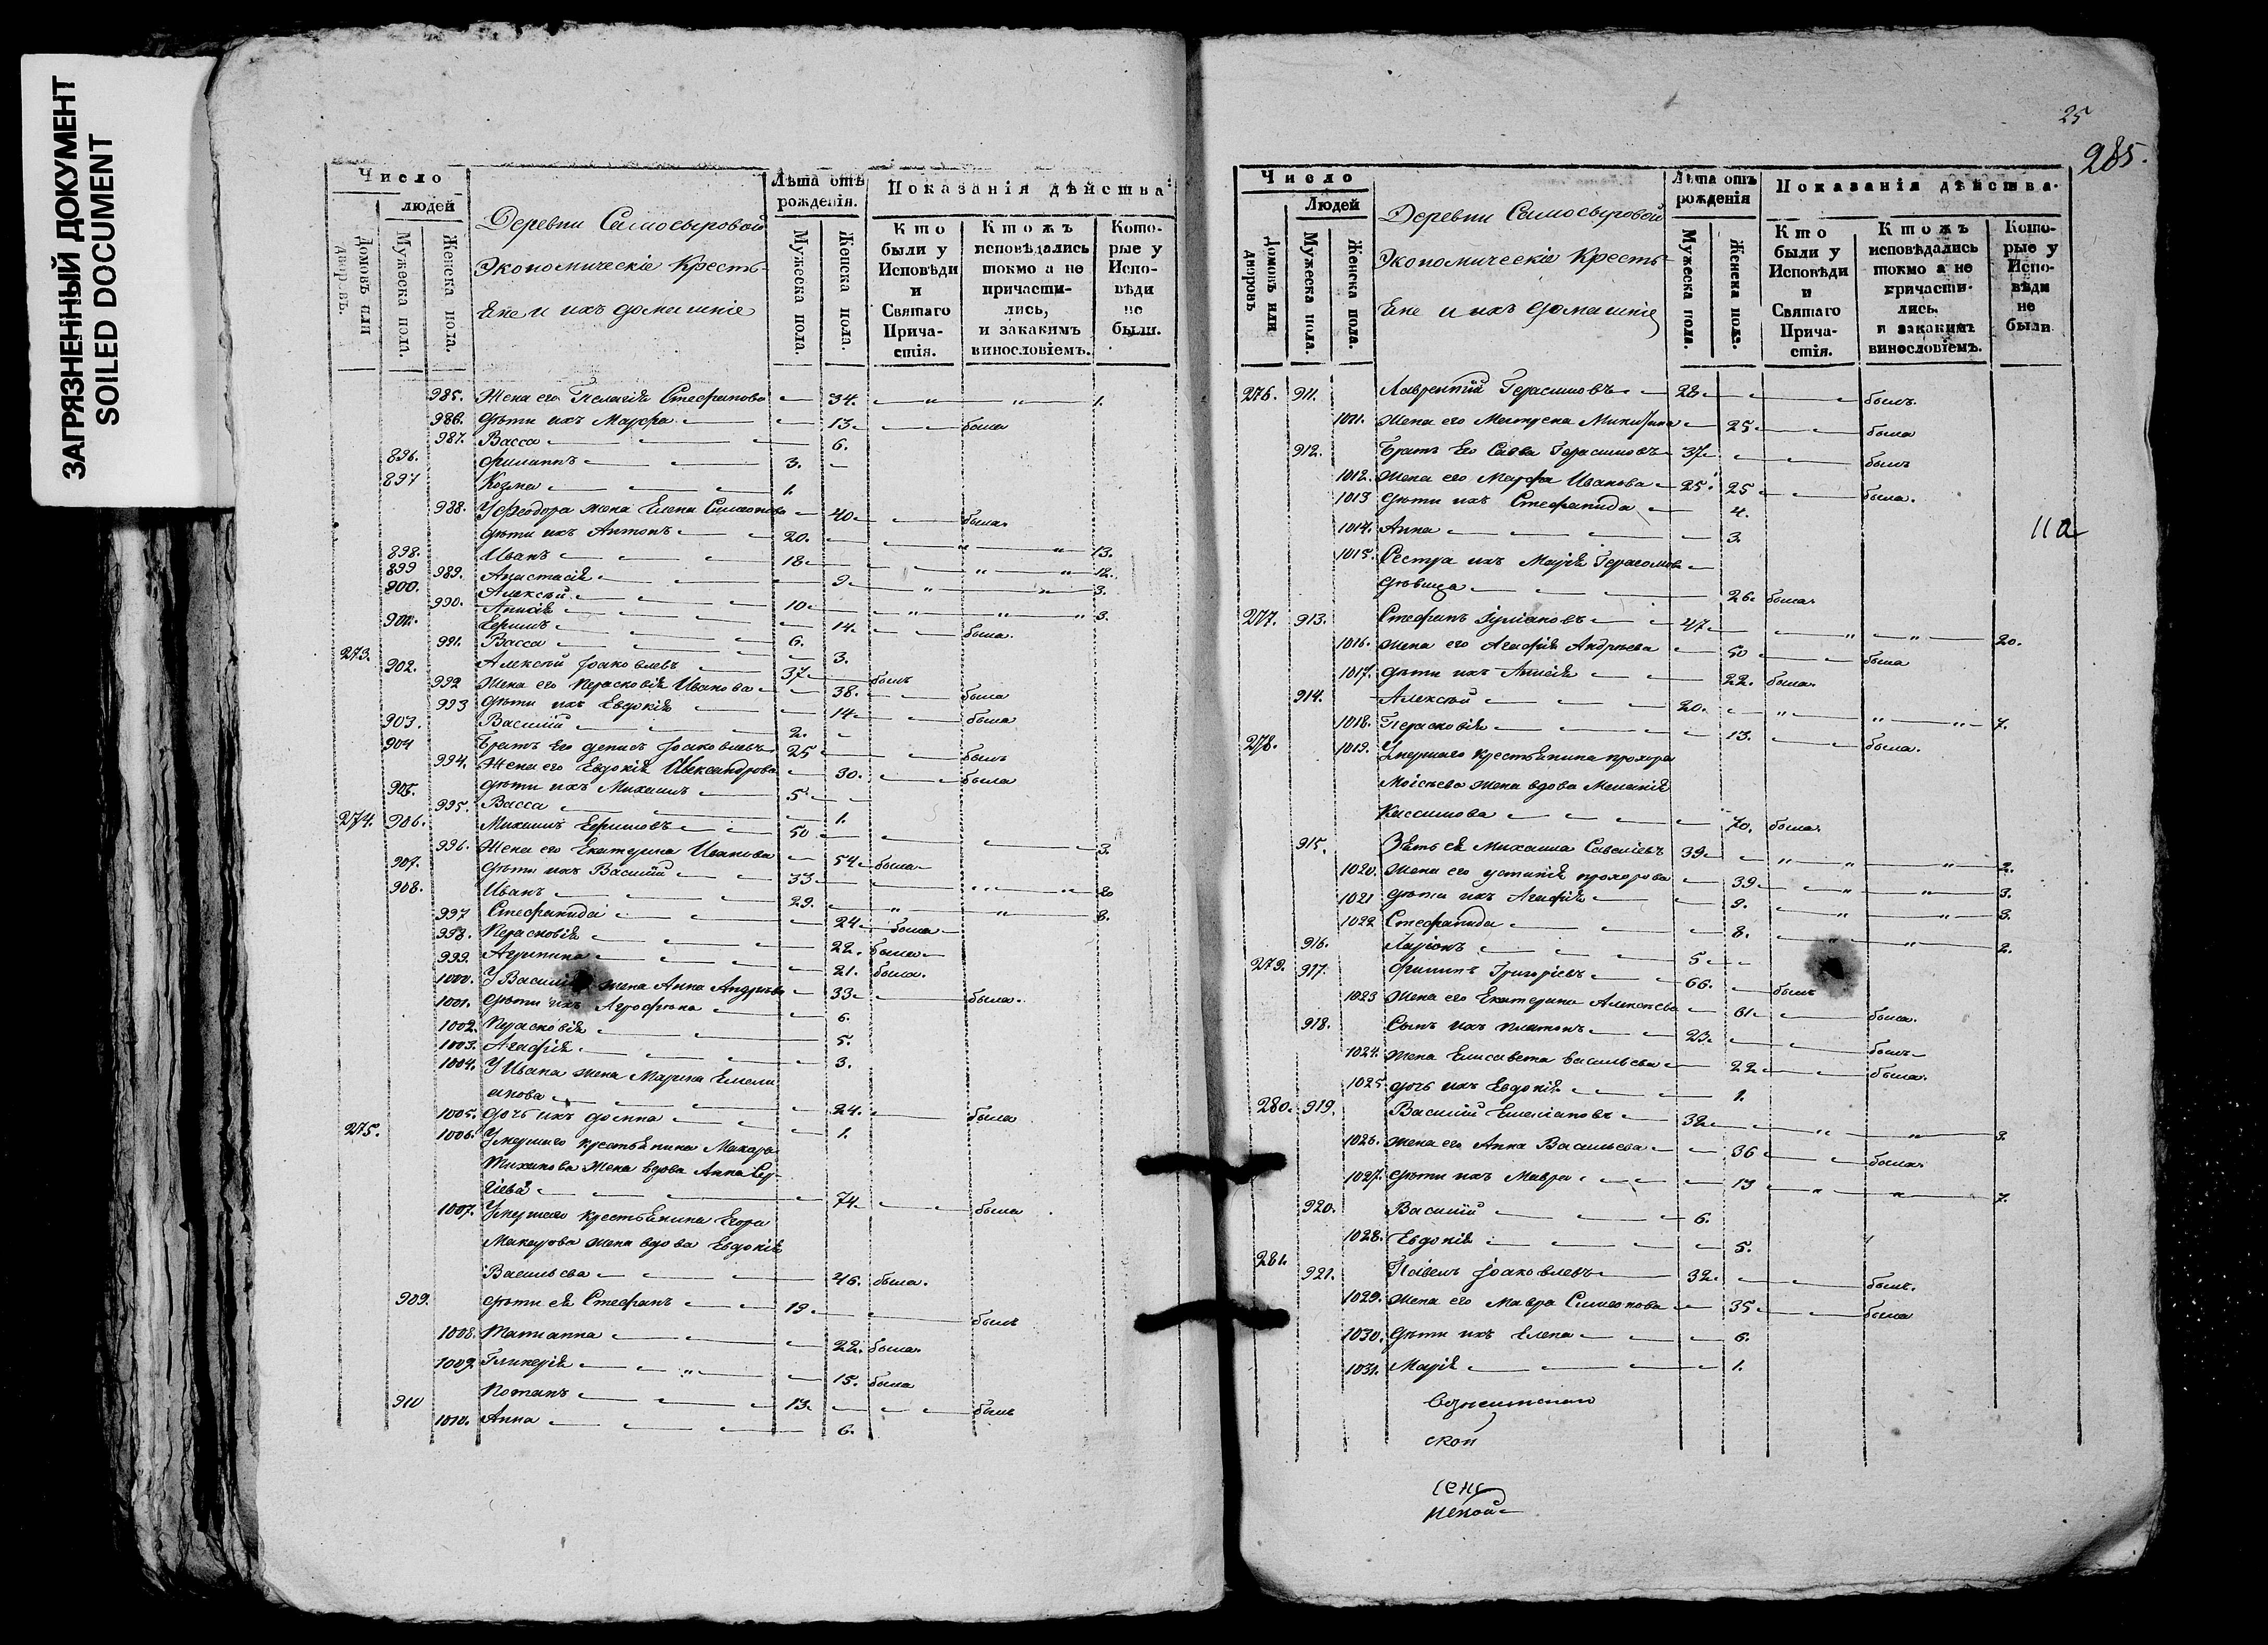 ЗАГРЯЗНЕННЫЙ ДОКУМЕНТ
SOILED DOCUMENT
Число
людей
Домовъ или дворовъ.
Мужеска пола.
Женска пола.
Деревни Самосыровой
Экономическіе Кресть-
ѣне и ихъ домашніе
Лѣта отъ рожденія.
Мужеска пола.
Женска пола.
Показанія дѣйства:
Кто были у Исповѣди и Святаго Прича-стія.
Ктожъ исповѣдались токмо а не причасти-лись, и закакимъ винословіемъ.
Кото-рые у Испо-вѣди не были.
985. Жена его Пелагіѣ Стефанова 34. " " 1.
986. дѣти ихъ Марфа 13 была
987. Васса 6.
896. Филиппъ 3.
897 Козма 1.
988. У Феодора жена Елена Симеонова 40 была
дѣти ихъ Антонъ 20. " " 13.
898. Иванъ 18 " " 12.
899 989. Анастасіѣ 9 " " 3.
900. Алексѣй 10 " " " 3.
990. Анисіѣ 14 была.
901. Ефимъ 6.
991. Васса 3.
273. 902. Алексѣй Іоаковлевъ 37 былъ
992 Жена его Парасковіѣ Иванова 38. была
993 дѣти ихъ Евдокіѣ 14 была
903. Василій 2.
904 Братъ его Денисъ Іоаковлевъ 25 былъ
994. Жена его Евдокіѣ Александрова 30. была
905. дѣти ихъ Михаилъ 5
995. Васса 1.
274. 906. Михаилъ Ефимовъ 50 3.
996. Жена его Екатерина Иванова 54 была
907. дѣти ихъ Василій 33 " " 20
908. Иванъ 29. " " 8.
997 Стефанида 24 была
998. Парасковіѣ 22. была
999. Агрипина 21. была.
1000. У Василія жена Анна Андрѣева 33 была.
1001. дѣти ихъ Агрофѣна 6.
1002. Парасковіѣ 5.
1003. Агафіѣ 3.
1004. У Ивана жена Марина Емели
анова 24. была
1005. дочь ихъ домна 1.
275. 1006. Умершаго крестьѣнина Макара
Тиханова жена вдова Анна Сер-
гіева 74. была
1007. Умершаго крестьѣнина Егора
Макарова жена вдова Евдокіѣ
Васильева 46. была.
909. дѣти еѣ Стефанъ 19. былъ
1008. Татианна 22. была
1009. Гликеріѣ " 15. была
910 Потапъ 13. былъ
1010. Анна 6.
25
285.
Число
Людей
Домовъ или дворовъ
Мужеска пола.
Женска пола.
Деревни Самосыровой
Экономическіе Кресть-
ѣне и ихъ домашніе
Лѣта отъ рожденія
Мужеска пола.
Женска пола.
Показанія дѣйства.
Кто были у Исповѣди и Святаго Прича-стія.
Ктожъ исповѣдались токмо а не причасти-лись. и закакимъ винословіемъ.
Кото-рые у Испо-вѣди не были
276. 911. Лаврентій Герасимовъ 28 былъ.
1011. Жена его Никитина 25 была
912. Братъ Его Савва Герасимовъ 37 былъ
1012. Жена его Марфа Иванова 25. 25 была.
1013 дѣти ихъ Стефанида 4.
1014. Анна 3.
11а
1015. Сестра ихъ Маріѣ Герасимова
дѣвица 26. была
277. 913. Стефанъ Іуліановъ 47 " " 20.
1016. Жена его Агафіѣ Андрѣева 50 была
1017. дѣти ихъ Анисіѣ 22. была
914. Алексѣй 20. " " " 7.
1018. Парасковіѣ 13. была.
278. 1019. Умершаго крестьѣнина прохора
Моісѣева жена вдова Меланіѣ
Кассимова 70. была
915. Зѣть еѣ Михаила Савеліевъ 39 " " " 2.
1020. Жена его устиніѣ прохорова 39 " " 3.
1021 дѣти ихъ Агафіѣ 9. " " 3.
1022 Стефанида 8. " " 2.
916. Ларіонъ 5
279. 917. Филипъ Григорьевъ 66. былъ
1023 Жена его Екатерина Алексѣева 61 была.
918. Сынъ ихъ Платонъ 23 былъ
1024. Жена Елисавета васильева 22 была.
1025 дочь ихъ Евдокіѣ 1.
280. 919. Василій Емеліановъ 32 " " 3.
1026. Жена его Анна Васильева 36 была
1027. дѣти ихъ Мавра 13 " " 7.
920. Василій 6.
1028. Евдокіѣ 5.
281. 921. Павелъ Іоаковлевъ 32. былъ.
1029. Жена его Мавра Симеонова 35 была
1030. дѣти ихъ Елена 6.
1031. Маріѣ 1.
скоп